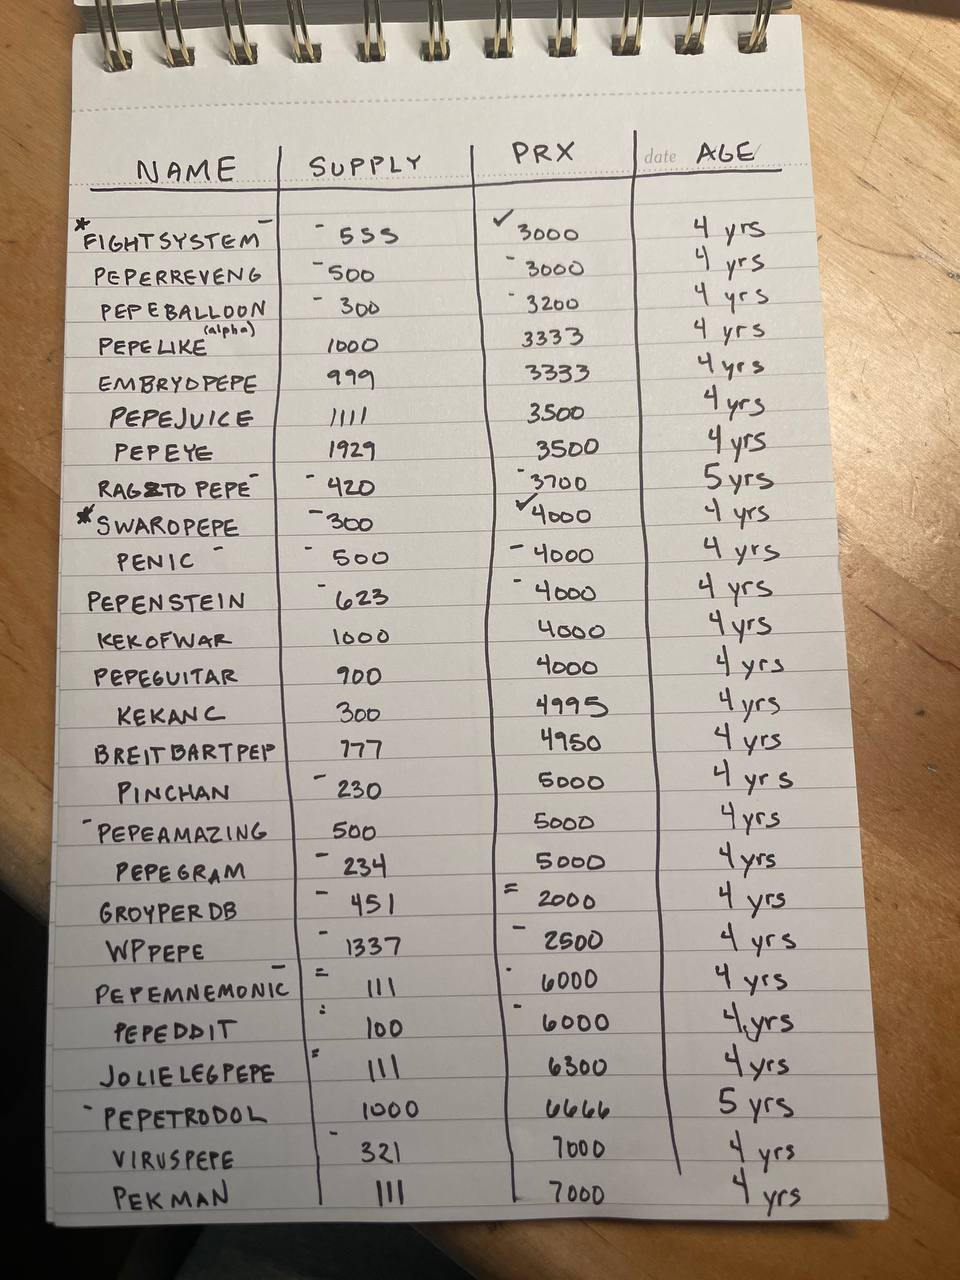 NAME SUPPLY PRX date AGE
*FIGHTSYSTEM - - 555 ✓ 3000 4 yrs
PEPERREVENG - 500 - 3000 4 yrs
PEPEBALLOON - 300 - 3200 4 yrs
PEPELIKE (alpha) 1000 3333 4 yrs
EMBRYOPEPE 999 3333 4 yrs
PEPEJUICE 1111 3500 4 yrs
PEPEYE 1929 3500 4 yrs
PEPE - - 420 - 3700 5 yrs
*SWAROPEPE - 300 ✓ 4000 4 yrs
PENIC - - 500 - 4000 4 yrs
PEPENSTEIN - 623 - 4000 4 yrs
KEKOFWAR 1000 4000 4 yrs
PEPEGUITAR 900 4000 4 yrs
KEKANC 300 4995 4 yrs
BREITBARTPEP 777 4950 4 yrs
PINCHAN - 230 5000 4 yrs
- PEPEAMAZING 500 5000 4 yrs
PEPEGRAM - 234 5000 4 yrs
GROYPERDB - 451 = 2000 4 yrs
WPPEPE - 1337 - 2500 4 yrs
PEPEMNEMONIC - = 111 - 6000 4 yrs
PEPEDDIT = 100 - 6000 4 yrs
JOLIELEGPEPE = 111 6300 4 yrs
- PEPETRODOL 1000 6666 5 yrs
VIRUSPEPE - 321 7000 4 yrs
PEKMAN 111 7000 4 yrs